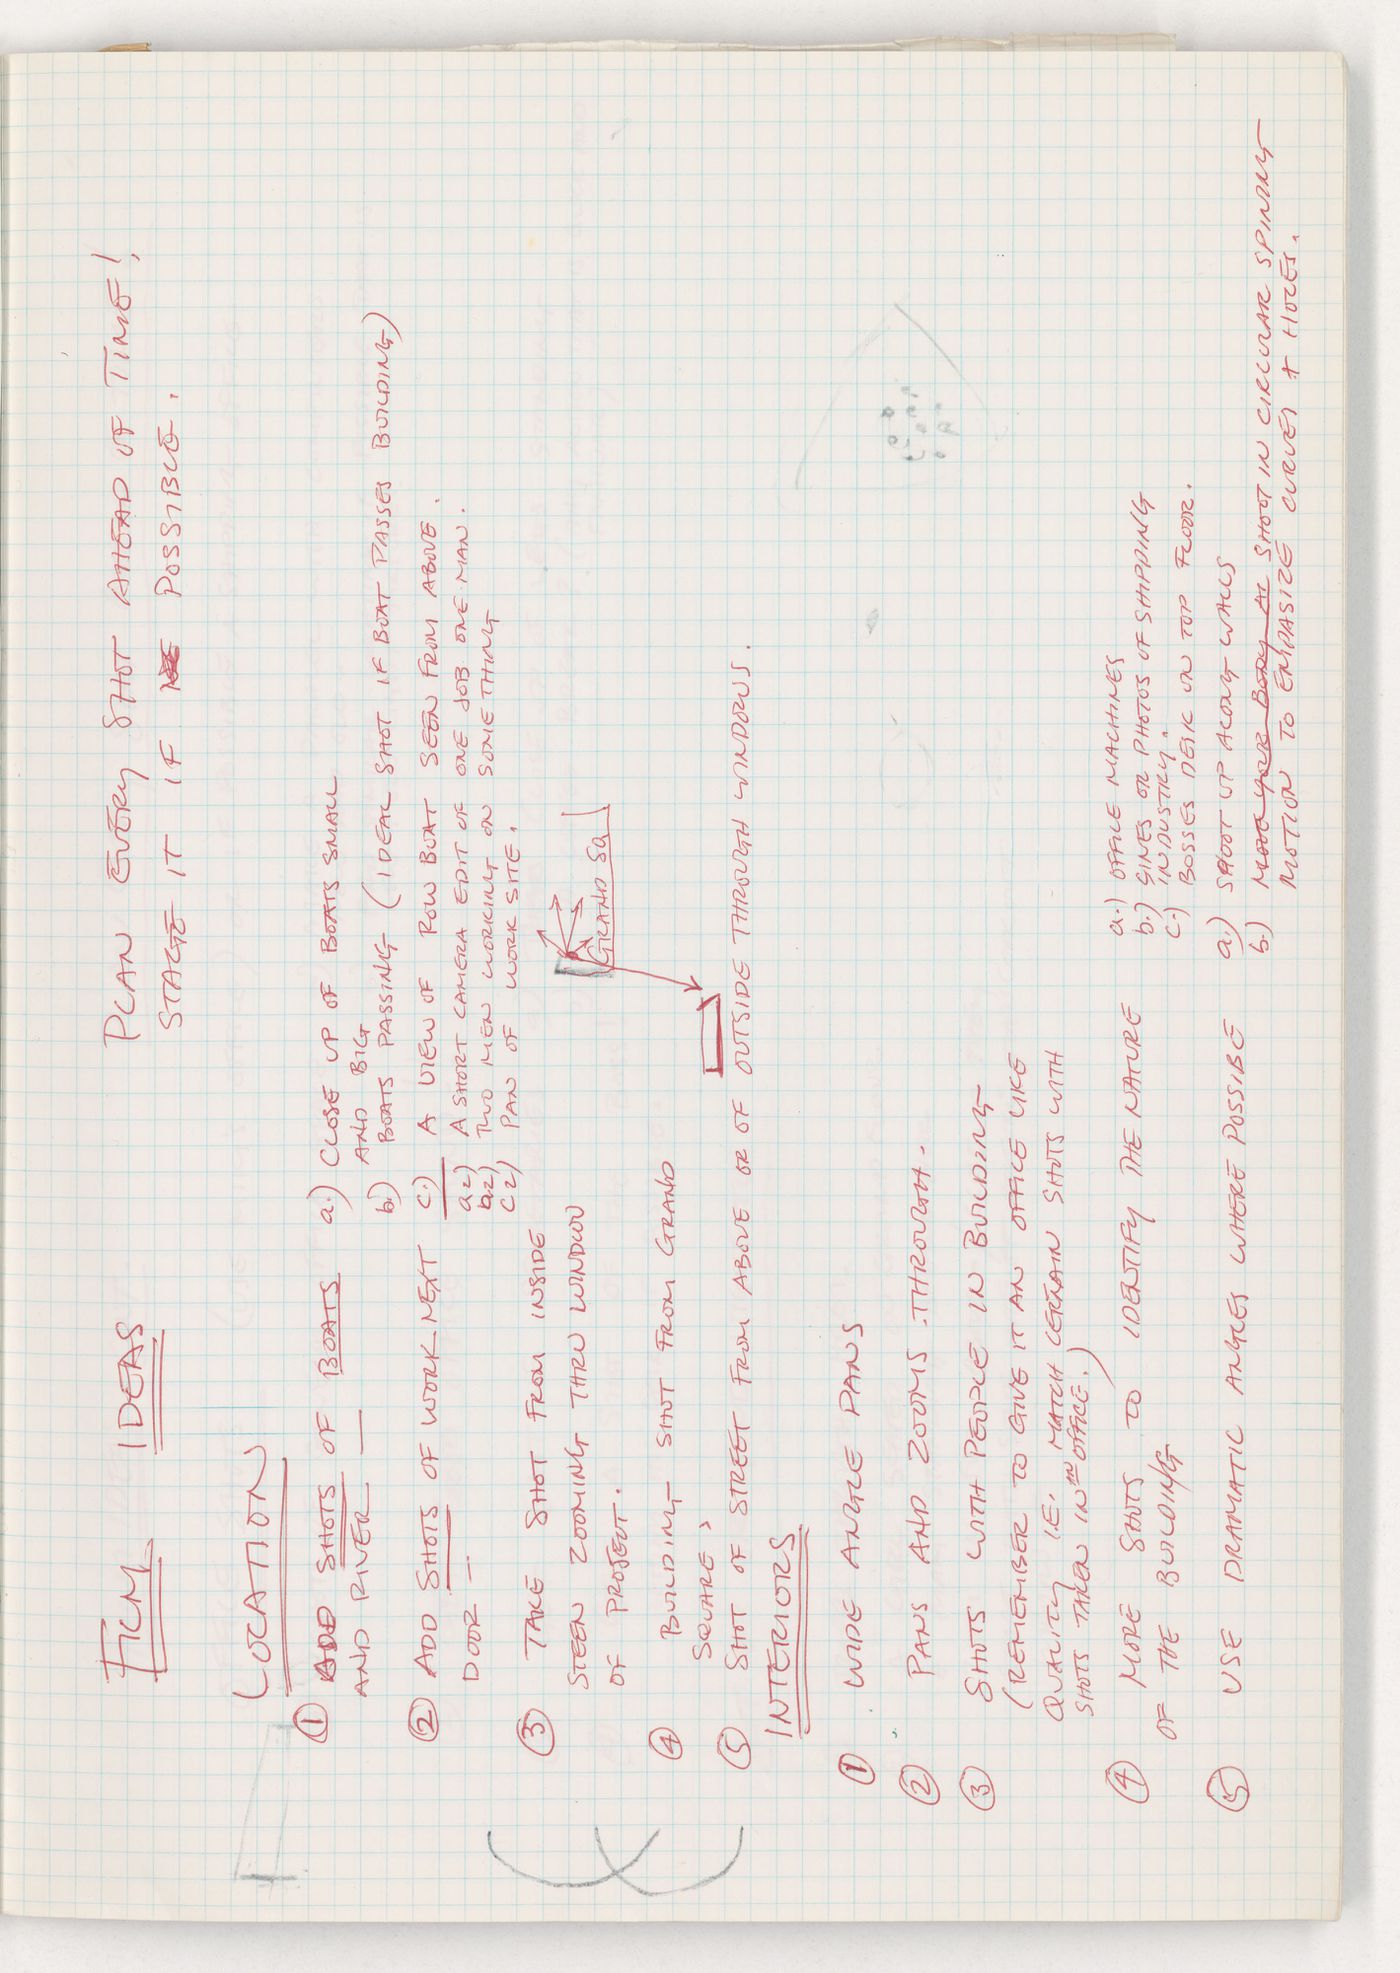 FILM IDEAS
PLAN EVERY SHOT AHEAD OF TIME!
STAGE IT IF POSSIBLE.
LOCATION
① ADD SHOTS OF BOATS
AND RIVER —
a.) CLOSE UP OF BOATS SMALL
AND BIG
b.) BOATS PASSING (IDEAL SHOT IF BOAT PASSES BUILDING)
c.) A VIEW OF ROW BOAT SEEN FROM ABOVE.
② ADD SHOTS OF WORK NEXT
DOOR —
a2) A SHORT CAMERA EDIT OF ONE JOB ONE MAN.
b2) TWO MEN WORKING ON SOME THING
c2) PAN OF WORK SITE.
③ TAKE SHOT FROM INSIDE
STEEN ZOOMING THRU WINDOW
OF PROJECT.
GRAND SQ
④ BUILDING - SHOT FROM GRAND
SQUARE,
⑤ SHOT OF STREET FROM ABOVE OR OF OUTSIDE THROUGH WINDOWS.
INTERIORS
① WIDE ANGLE PANS
② PANS AND ZOOMS THROUGH.
③ SHOTS WITH PEOPLE IN BUILDING
(REMEMBER TO GIVE IT AN OFFICE LIKE
QUALITY I.E. MATCH CERTAIN SHOTS WITH
SHOTS TAKEN IN OFFICE.)
④ MORE SHOTS TO IDENTIFY THE NATURE
OF THE BUILDING
a.) OFFICE MACHINES
b.) SINES OR PHOTOS OF SHIPPING
INDUSTRY.
c.) BOSSES DESK ON TOP FLOOR.
⑤ USE DRAMATIC ANGLES WHERE POSSIBLE
a.) SHOOT UP ALONG WALLS
b.) MOVE YOUR BODY SHOOT IN CIRCULAR SPINING
MOTION TO EMPASIZE CURVES + HOLES.